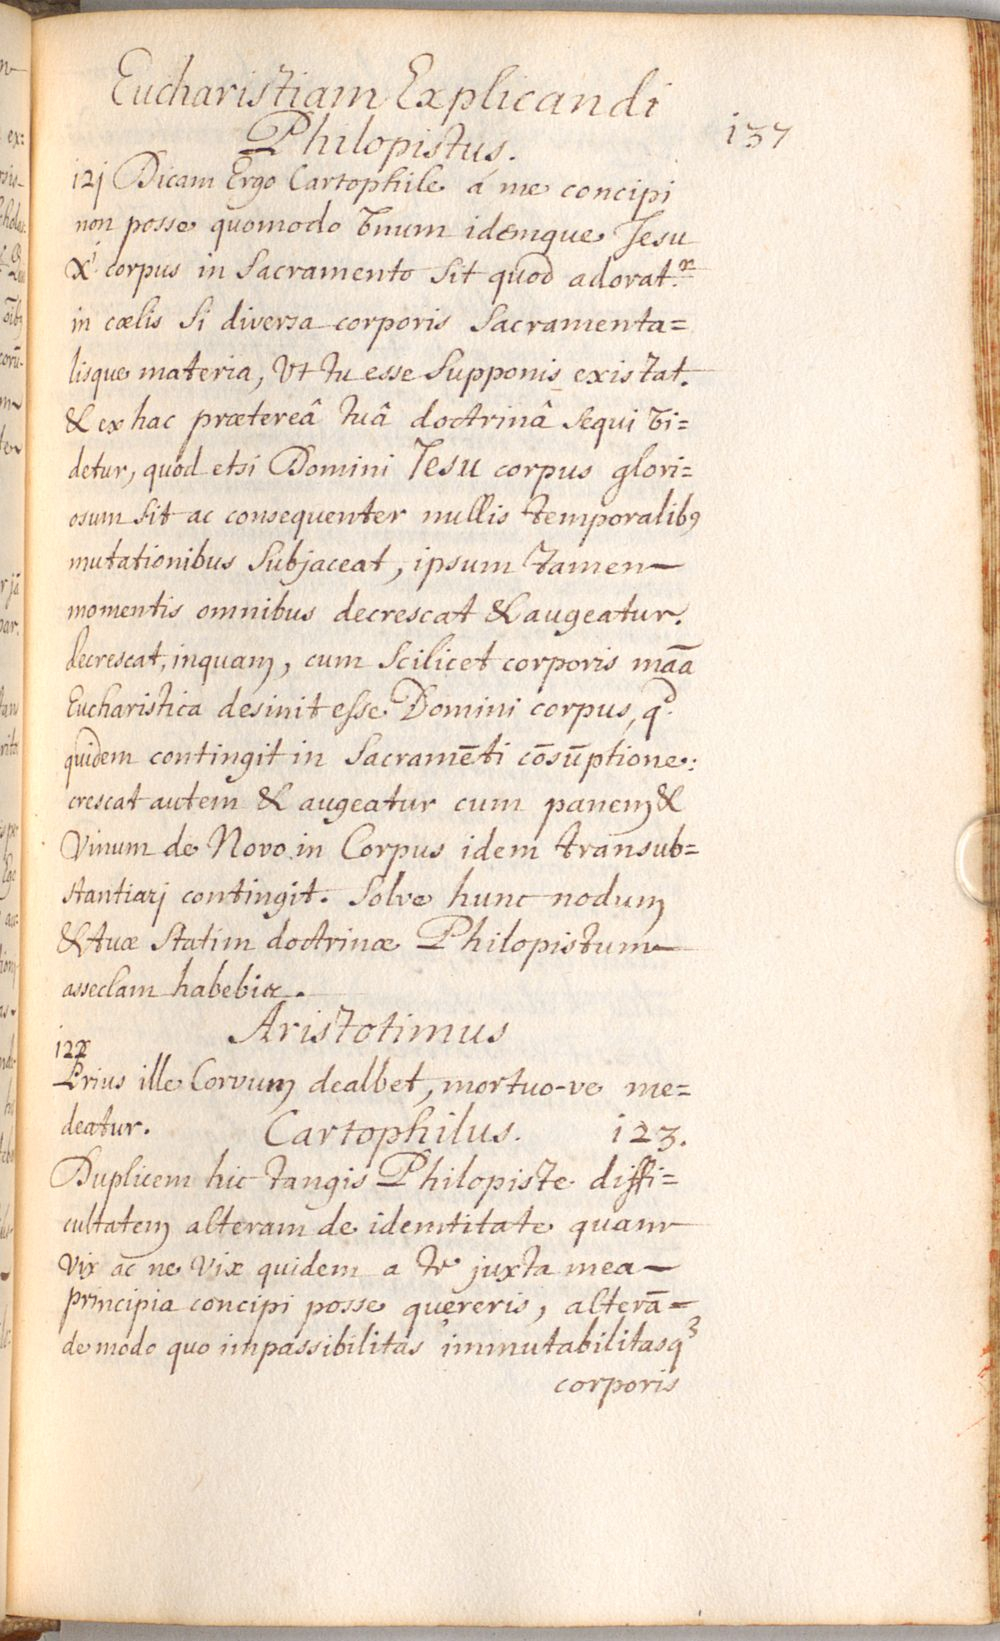 Eucharistiam Explicandi
137
Philopistus.
121 Dicam Ergo Cartophile à me concipi
non posse quomodo Vnum idemque Jesu
Xi corpus in Sacramento sit quod adorat.r
in cœlis si diversa corporis Sacramenta=
lisque materia, Vt tu esse Supponis existat.
& ex hac prætereâ tuâ doctrinâ sequi Vi=
detur, quod etsi Domini Jesu corpus glori=
osum sit ac consequenter nullis temporalib9
mutationibus Subjaceat, ipsum tamen
momentis omnibus decrescat & augeatur.
decrescat, inquam, cum Scilicet corporis māa
Eucharistica desinit esse Domini corpus, qd.
quidem contingit in Sacramēti cōsūptione:
crescat autem & augeatur cum panem &
Vinum de Novo in Corpus idem transub=
stantiarj contingit. Solve hunc nodum
& tuæ statim doctrinæ Philopistum
asseclam habebis.
Aristotimus
122
Prius ille Corvum dealbet, mortuo-ve me=
deatur. Cartophilus. 123.
Duplicem hic tangis Philopiste diffi=
cultatem alteram de identitate quam
Vix ac ne Vix quidem a te juxta mea
principia concipi posse quereris, alterā=
de modo quo impassibilitas immutabilitasq3
corporis